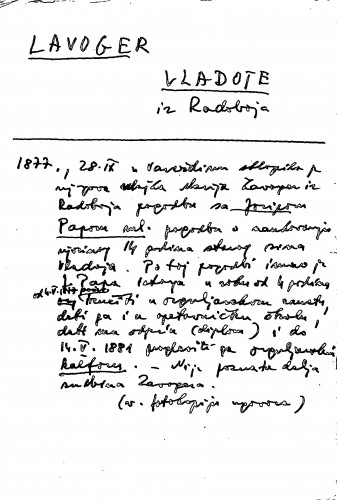 LAVOGER
VLADOJE
iz Radoboja
1877., 28. IX u Varaždinu sklopila je
njegova majka Marija Lavoger iz
Radoboja pogodbu sa Josipom
Papom ml. pogodbu o naukovanju
njezinog 14 godina starog sina
Vladoja. Po toj pogodbi imao je
J. Papa istoga u roku od 4 godine
od 14.V.1877
izučiti u orguljarskom zanatu,
dati ga i u opetovnicu školu,
dati mu odjeću (diplomu) i do
14. V. 1881 proglasiti ga orguljarskim
kalfom. – Nije poznata dalja
sudbina Lavogera.
(v. fotokopiju ugovora)